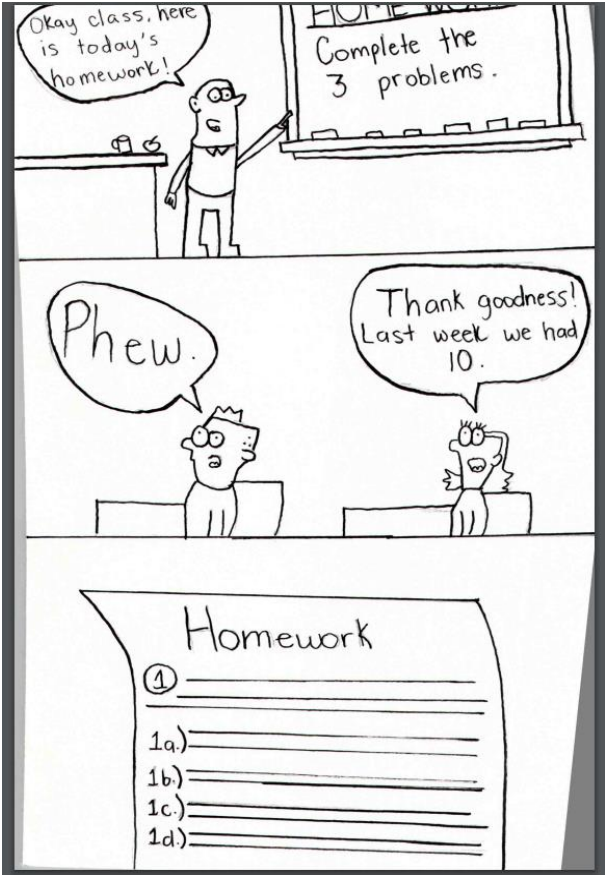 Okay class, here
is today's
homework!
HOMEWORK
Complete the
3 problems.
Phew.
Thank goodness!
Last week we had
10.
Homework
1
1a.)
1b.)
1c.)
1d.)